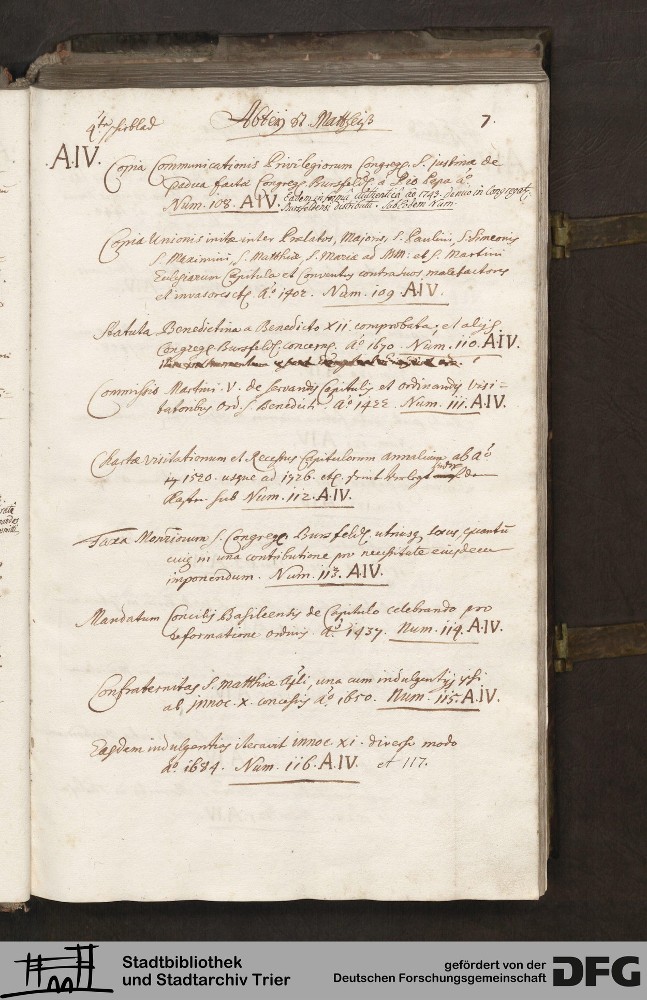 4te schublad
Abteÿ St. Mattheiß 7.
A.IV. Copia Communicationis Privilegiorum Congreg. S. Justinæ de
Padua factæ Congreg. Bursfeld. a Pio Papa aº.
Num. 108. A.IV. Eadem in forma authentica aº 1743. denuo in Congregat.
Bursfeldensi distribut. sub eodem Num.
Copia Unionis initæ inter Prælatos, Majoris, S. Paulini, S. Simeonis
S. Maximini, S. Matthiæ, S. Mariæ ad MM: et S. Martini
Ecclesiarum Capitula et Conventus contra suos malefactores
et invasores etc. Aº. 1402. Num. 109. A.IV.
Statuta Benedictina a Benedicto XII. comprobata, et aliis
Congreg. Bursfeld. concern. Aº 1670. Num. 110. A.IV.
Commissio Martini V. de servandis Capitulis et ordinandis Visi=
tatoribus Ord. S. Benedicti. Aº. 1422. Num. 111. A.IV.
Chartæ visitationum et Recessus Capitulorum annalium ab aº.
1520. usque ad 1726. etc. sunt
sub Num. 112. A.IV.
Taxa Monriorum S. Congreg. Bursfeld. utriusq sexus, quantum
cuiq in una contributione pro necessitate eiusdem
imponendum. Num. 113. A.IV.
Mandatum Concilii Basileensis de Capitulo celebrando pro
reformatione ordinis. Aº. 1437. Num. 114. A.IV.
Confraternitas S. Matthiæ Apli, una cum indulgentiis ipsi
ab Innoc. X. concessis Aº. 1650. Num. 115. A.IV.
Easdem indulgentias iteravit Innoc. XI. diverso modo
Aº. 1684. Num. 116. A.IV. et 117.
Stadtbibliothek
und Stadtarchiv Trier
gefördert von der
Deutschen Forschungsgemeinschaft
DFG